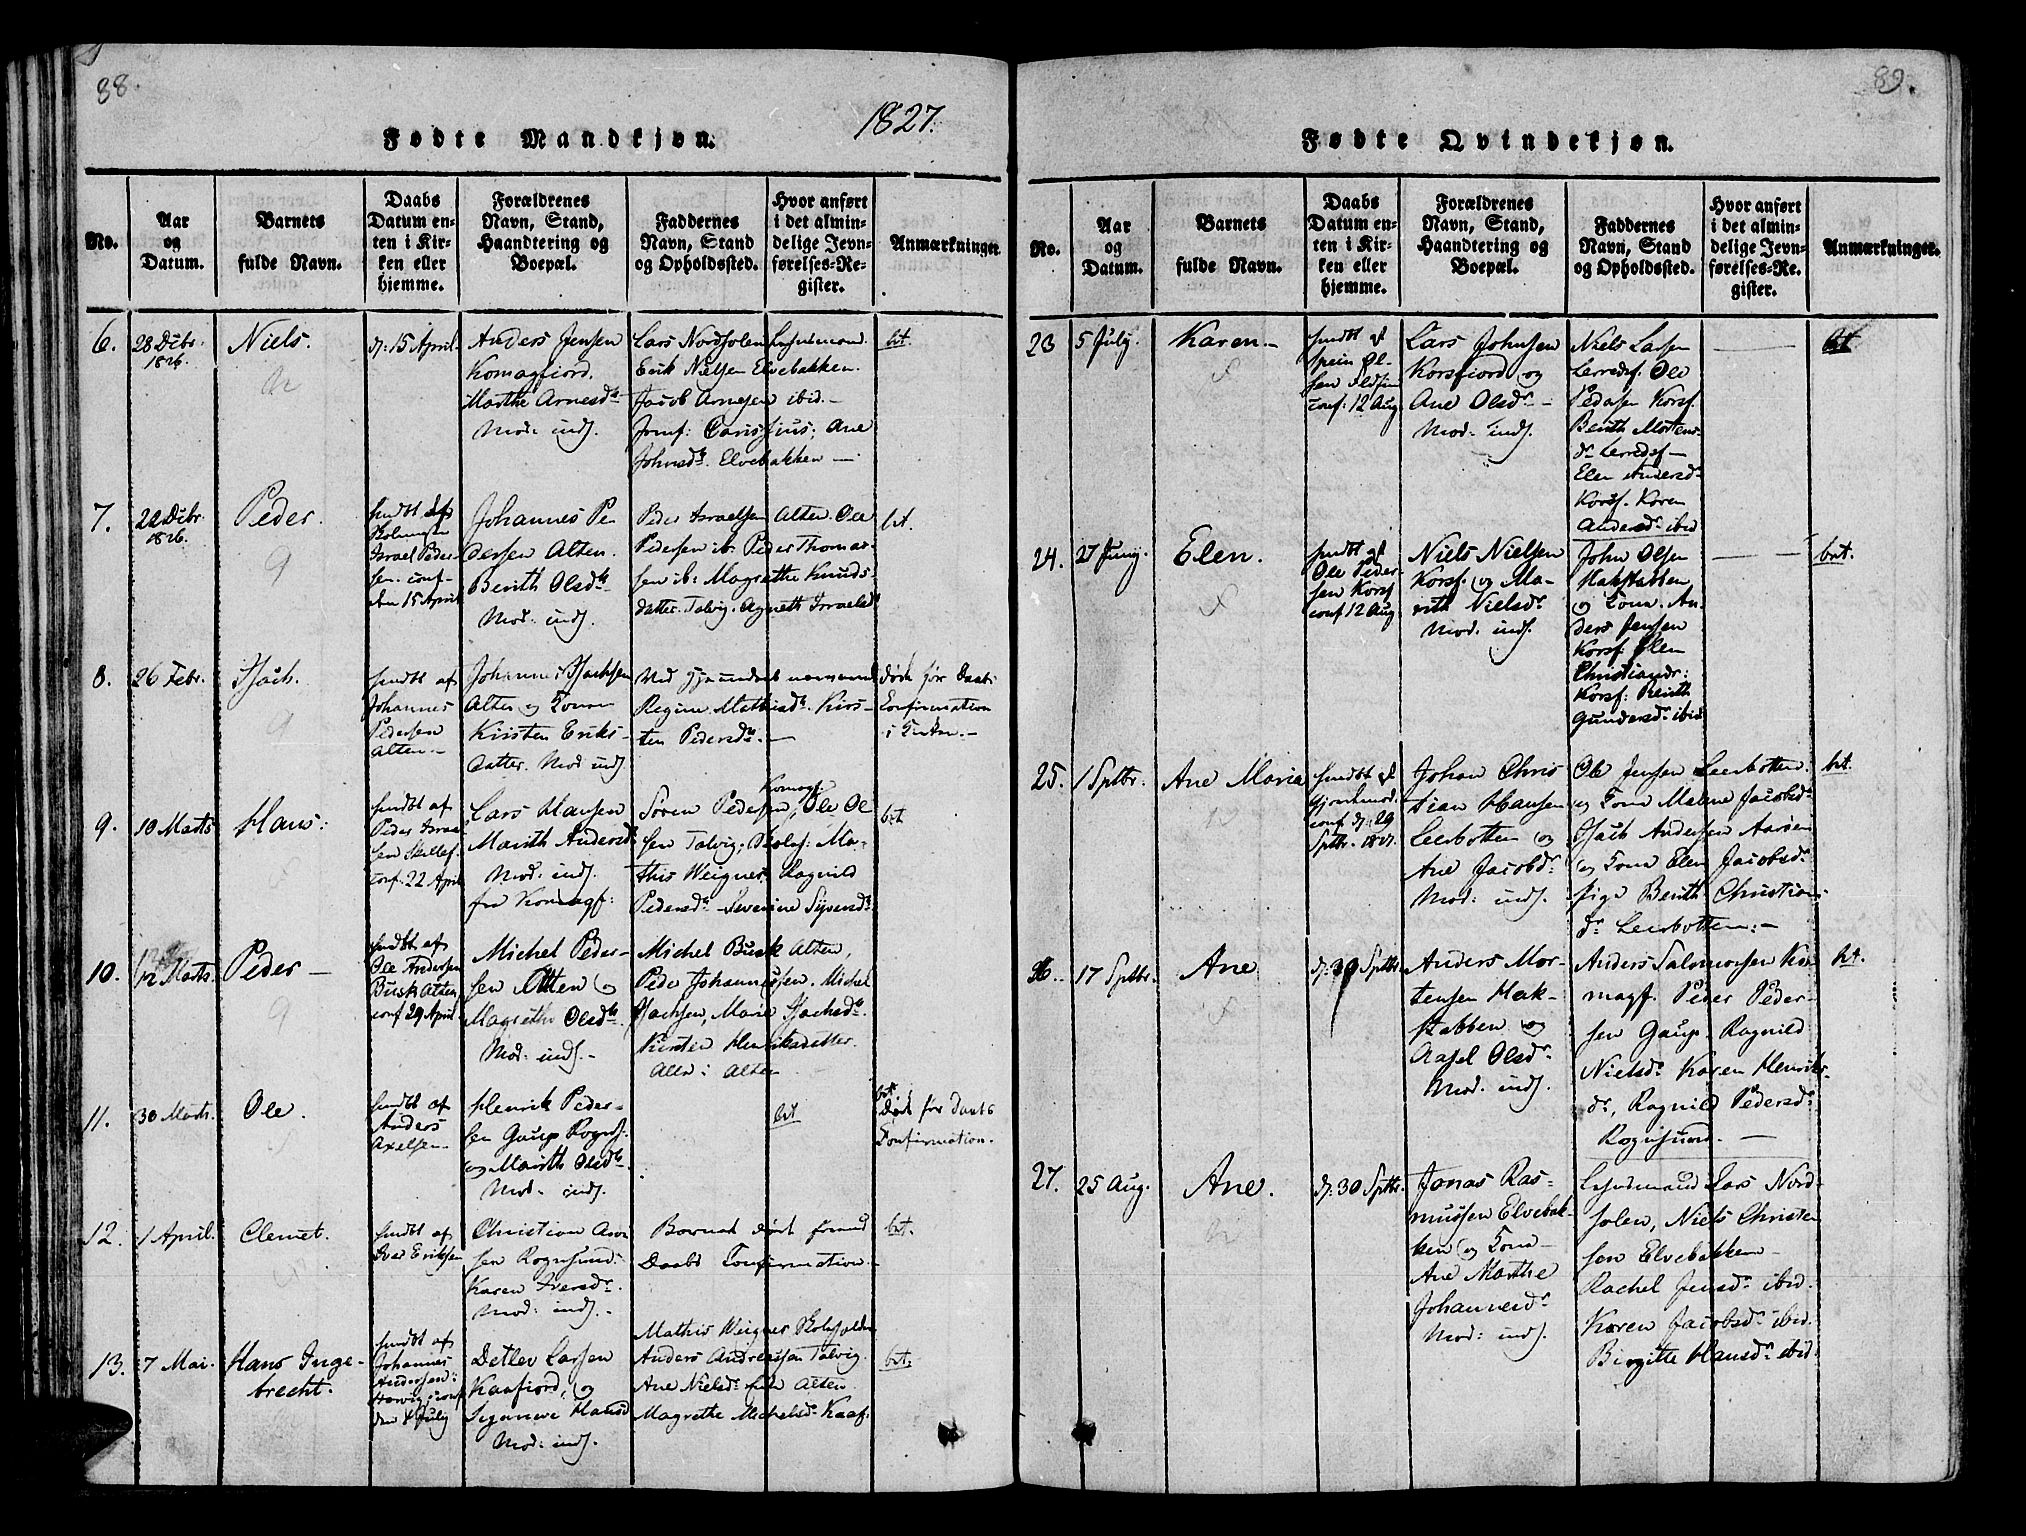 88.
1827.
Fødte Mandkjøn.
No.
Aar
og
Datum.
Barnets
fulde Navn.
Daabs
Datum en-
ten i Kir-
ken eller
hjemme.
Forældrenes
Navn, Stand,
Haandtering og
Boepæl.
Faddernes
Navn, Stand
og Opholdssted.
Hvor anført
i det almin-
delige Jevn-
førelses-Re-
gister.
Anmærkninger.
6.
28 Dcbr.
1826.
Niels.
d: 15 April.
Anders Jensen
Komagfiord.
Marthe Arnesd
Mod: inds.
Lars Nordsolen
Erik Nielsen Elvebakken.
Jacob Arnesen ibid.
Ane
Johnsd. Elvebakken —
bt.
7.
22 Dcbr.
1826.
Peder.
hiemdøbt af
Israel Peder-
sen. conf
den 15 April
Johannes Pe
dersen Alten.
Berith Olsd
Mod: inds.
Peder Israelsen Alten. Ole
Pedersen ib: Peder Thomas-
sen ib: Magrethe Knuds-
datter. Talvig. Agneth Israelsd
bt.
8.
26 Febr.
hiemdøbt af
Johannes
Pedersen
Alten.—
Johannes
Alten og Kone
Kirsten Eriks-
datter. Mod inds
Regine Mathisd. Kirs-
ten Pedersd. —
Døde før Daabs
Confirmation
9.
10 Marts
Hans:
hiemdøbt af
Peder Israel
sen
conf. 22 April
Lars Hansen
Marith Andersd
Mod: inds.
fra Komagf:
Komagf.
Søren Pedersen, Ole Ol
sen Talvig; Skolef: Ma-
this Weigner Ragnild
Pedersd. Severine Syversd.
bt
10.
12 Marts.
Peder —
hiemdøbt af
Ole Andersen
Busk Alten
conf 29 April.
Michel Peder-
sen Alten og
Magrethe Olsd.
Mod: inds.-
Michel Busk Alten,
Peder Johannessen. Michel
Marie
Kirsten Henriksdatter.
Alle i Alten
11.
30 Marts.
Ole.
hiemdøbt af
Anders
Axelsen.
Henrik Peder-
sen Gaup Rognsf.
og Marith Olsd.
Mod: inds.
bt
Døde før Daabs
Confirmation.
12.
1 April.
Clemet.
hiemdøbt af
Ivar Eriksen
Christian
sen Rognsund.
Karen Iversd.
Mod: inds.
Barnet døde forend
Daabs Confirmation.
bt.
13.
7 Mai.
Hans Inge-
brecht.
hiemdøbt af
Johannes
Andersen:
conf
den 8 July
Detlev Larsen
Kaafiord, og
Hansd
Mod: inds.
Mathis Weigner Skoleholder
Anders Andreasen Talvig.
Ane Nielsd. fra Alten.
Magrethe Michelsd. Kaaf.
bt.
89.
Fødte Qvindekjøn.
No.
Aar
og
Datum.
Barnets
fulde Navn.
Daabs
Datum en-
ten i Kir-
ken eller
hjemme.
Forældrenes
Navn, Stand,
Haandtering og
Boepæl.
Faddernes
Navn, Stand
og Opholdssted.
Hvor anført
i det almin-
delige Jevn-
førelses-Re-
gister.
Anmærkninger.
23
5 July.
Karen —
hiemdøbt af
conf: 12 Aug
Lars Johnsen
Korsfiord og
Ane Olsd. —
Mod: inds.
Niels Larsen
Lerredsf. Ole
Pedersen Korsf.
Berith Mortens
d. Lerredsf —
Elen Andersd
Korsf. Karen
Andersd. ibid
bt
24.
27 Juny.
Elen.
hiemdøbt af
Ole Peder-
sen Korsf
conf 12 Aug
Niels Nielsen
Korsf. og Ma-
rith Nielsd.
Mod: inds.
John Olsen
Hakstabben,
og Kone. An-
ders Jensen
Korsf. Elen
Korsf: Berith
Gundersd. ibid
bt.
25.
1 Sptbr.
Ane Maria
hiemdøbt af
conf d: 29
Sptbr. 1827.
Johan Chris
tian Hansen
Leerbotten og
Ane Jacobd.
Mod: inds.
Ole Jensen Leerbotten.
og Kone Malene Jacobsd.
Andersen
og Kone Elen Jacobsd.
pige Berith Christian
d. Leerbotten: —
bt.
26.
17 Sptbr.
Ane
d: 30 Sptbr.
Anders Mor-
tensen Hak-
stabben og
Mod: inds.
Anders Salmonsen Ko
magf. Peder Peder-
sen Gaup. Ragnild
Nielsd. Karen Henriks-
d., Ragnild Pedersd.
Rognsund. —
bt.
27.
25 Aug.
Ane.
d: 30 Sptbr.
Jonas Ras-
mussen Elvebak-
ken og Kone
Ane Marthe
Johannesd.
Mod: inds.
Lensmand Lars Nord-
solen, Niels Christen
sen Elvebakken —
Rachel Jensd. ibid.
Karen Jacobsd. ibid.
Birgitte Hansd. ibid.